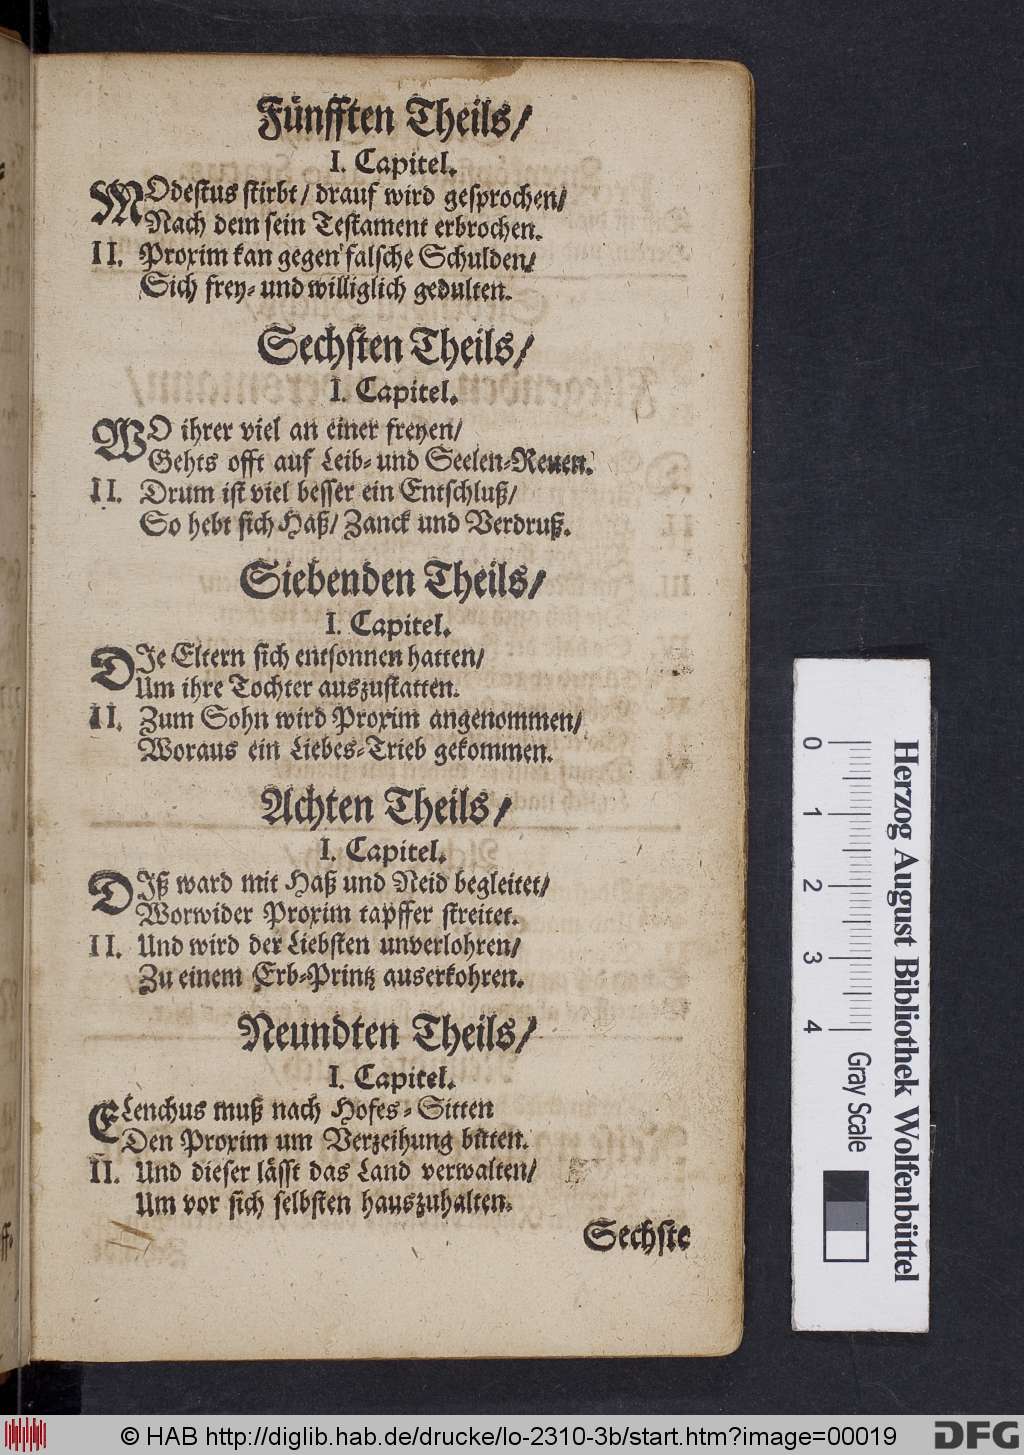 Fünfften Theils/
I. Capitel.
MOdestus stirbt/ drauf wird gesprochen/
Nach dem sein Testament erbrochen.
II. Proxim kan gegen falsche Schulden/
Sich frey- und williglich gedulten.
Sechsten Theils/
I. Capitel.
WO ihrer viel an einer freyen/
Gehts offt auf Leib- und Seelen-Reuen.
II. Drum ist viel besser ein Entschluß/
So hebt sich Haß/ Zanck und Verdruß.
Siebenden Theils/
I. Capitel.
DIe Eltern sich entsonnen hatten/
Um ihre Tochter auszustatten.
II. Zum Sohn wird Proxim angenommen/
Woraus ein Liebes-Trieb gekommen.
Achten Theils/
I. Capitel.
DIß ward mit Haß und Neid begleitet/
Worwider Proxim tapffer streitet.
II. Und wird der Liebsten unverlohren/
Zu einem Erb-Printz auserkohren.
Neundten Theils/
I. Capitel.
ELenchus muß nach Hofes-Sitten
Den Proxim um Verzeihung bitten.
II. Und dieser lässt das Land verwalten/
Um vor sich selbsten hauszuhalten.
Sechste
0 1 2 3 4 Gray Scale
Herzog August Bibliothek Wolfenbüttel
© HAB http://diglib.hab.de/drucke/lo-2310-3b/start.htm?image=00019
DFG